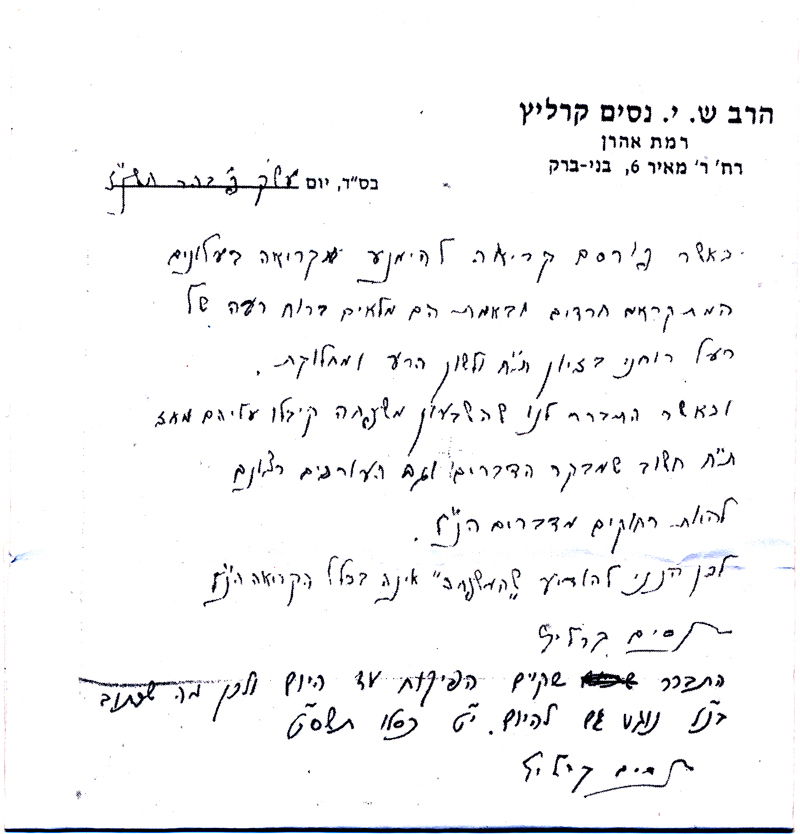 הרב ש. י. נסים קרליץ
רמת אהרן
רח' ר' מאיר 6, בני-ברק
בס"ד, יום עש"ק פ' בהר
כאשר פורסם קריאה להימנע מקריאה בעלונים
המתקראים חרדים ובאמת הם מלאים ברוח רעה של
רעל רוחני בזיון ת"ח ולשון הרע ומחלוקת.
וכאשר התברר לנו שהשבועון משפחה קיבלו עליהם מאז
ת"ח חשוב שמבקר הדברים וגם העורכים רצונם
להיות רחוקים מדברים הנ"ל.
לכן הנני להודיע ש"המשפחה" אינה בכלל הקריאה הנ"ל
נסים קרליץ
התברר שקיים הפיקוח עד היום ולכן מה שכתוב
בנ"ל נוגע גם להיום. י"ט כסלו תשס"ט
נסים קרליץ